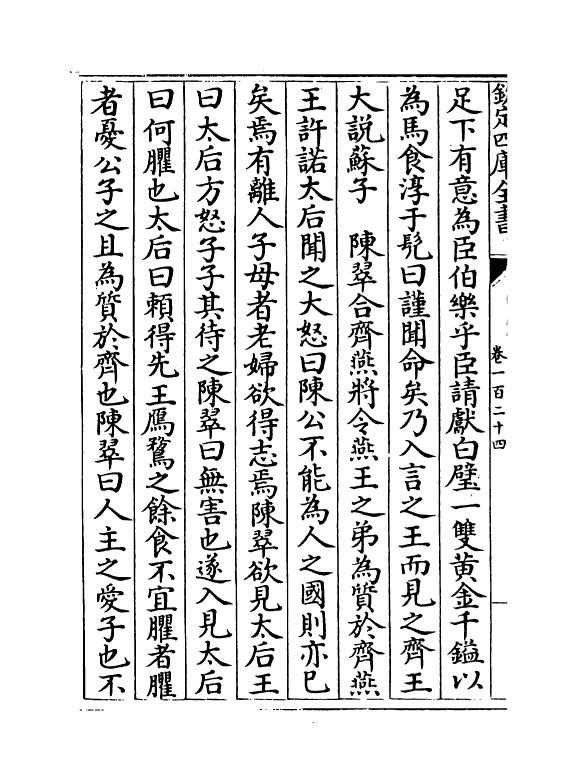 欽定四庫全書
卷一百二十四
足下有意為臣伯樂乎臣請獻白璧一雙黄金千鎰以
為馬食淳于髠曰謹聞命矣乃入言之王而見之齊王
大説蘇子　陳翠合齊燕將令燕王之弟為質於齊燕
王許諾太后聞之大怒曰陳公不能為人之國則亦已
矣焉有離人子母者老婦欲得志焉陳翠欲見太后王
曰太后方怒子子其待之陳翠曰無害也遂入見太后
曰何臞也太后曰頼得先王鴈鶩之餘食不宜臞者臞
者憂公子之且為質於齊也陳翠曰人主之愛子也不